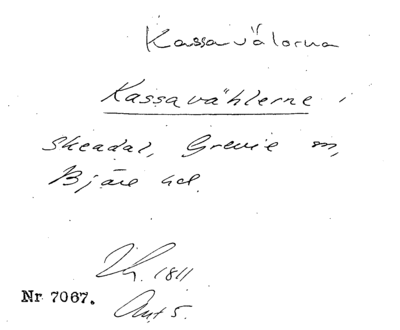 Kassavälorna
Kassavählerne i
skeadal, Grevie sn,
Bjäre hd.
1811
Nr 7067.
Akt 5.